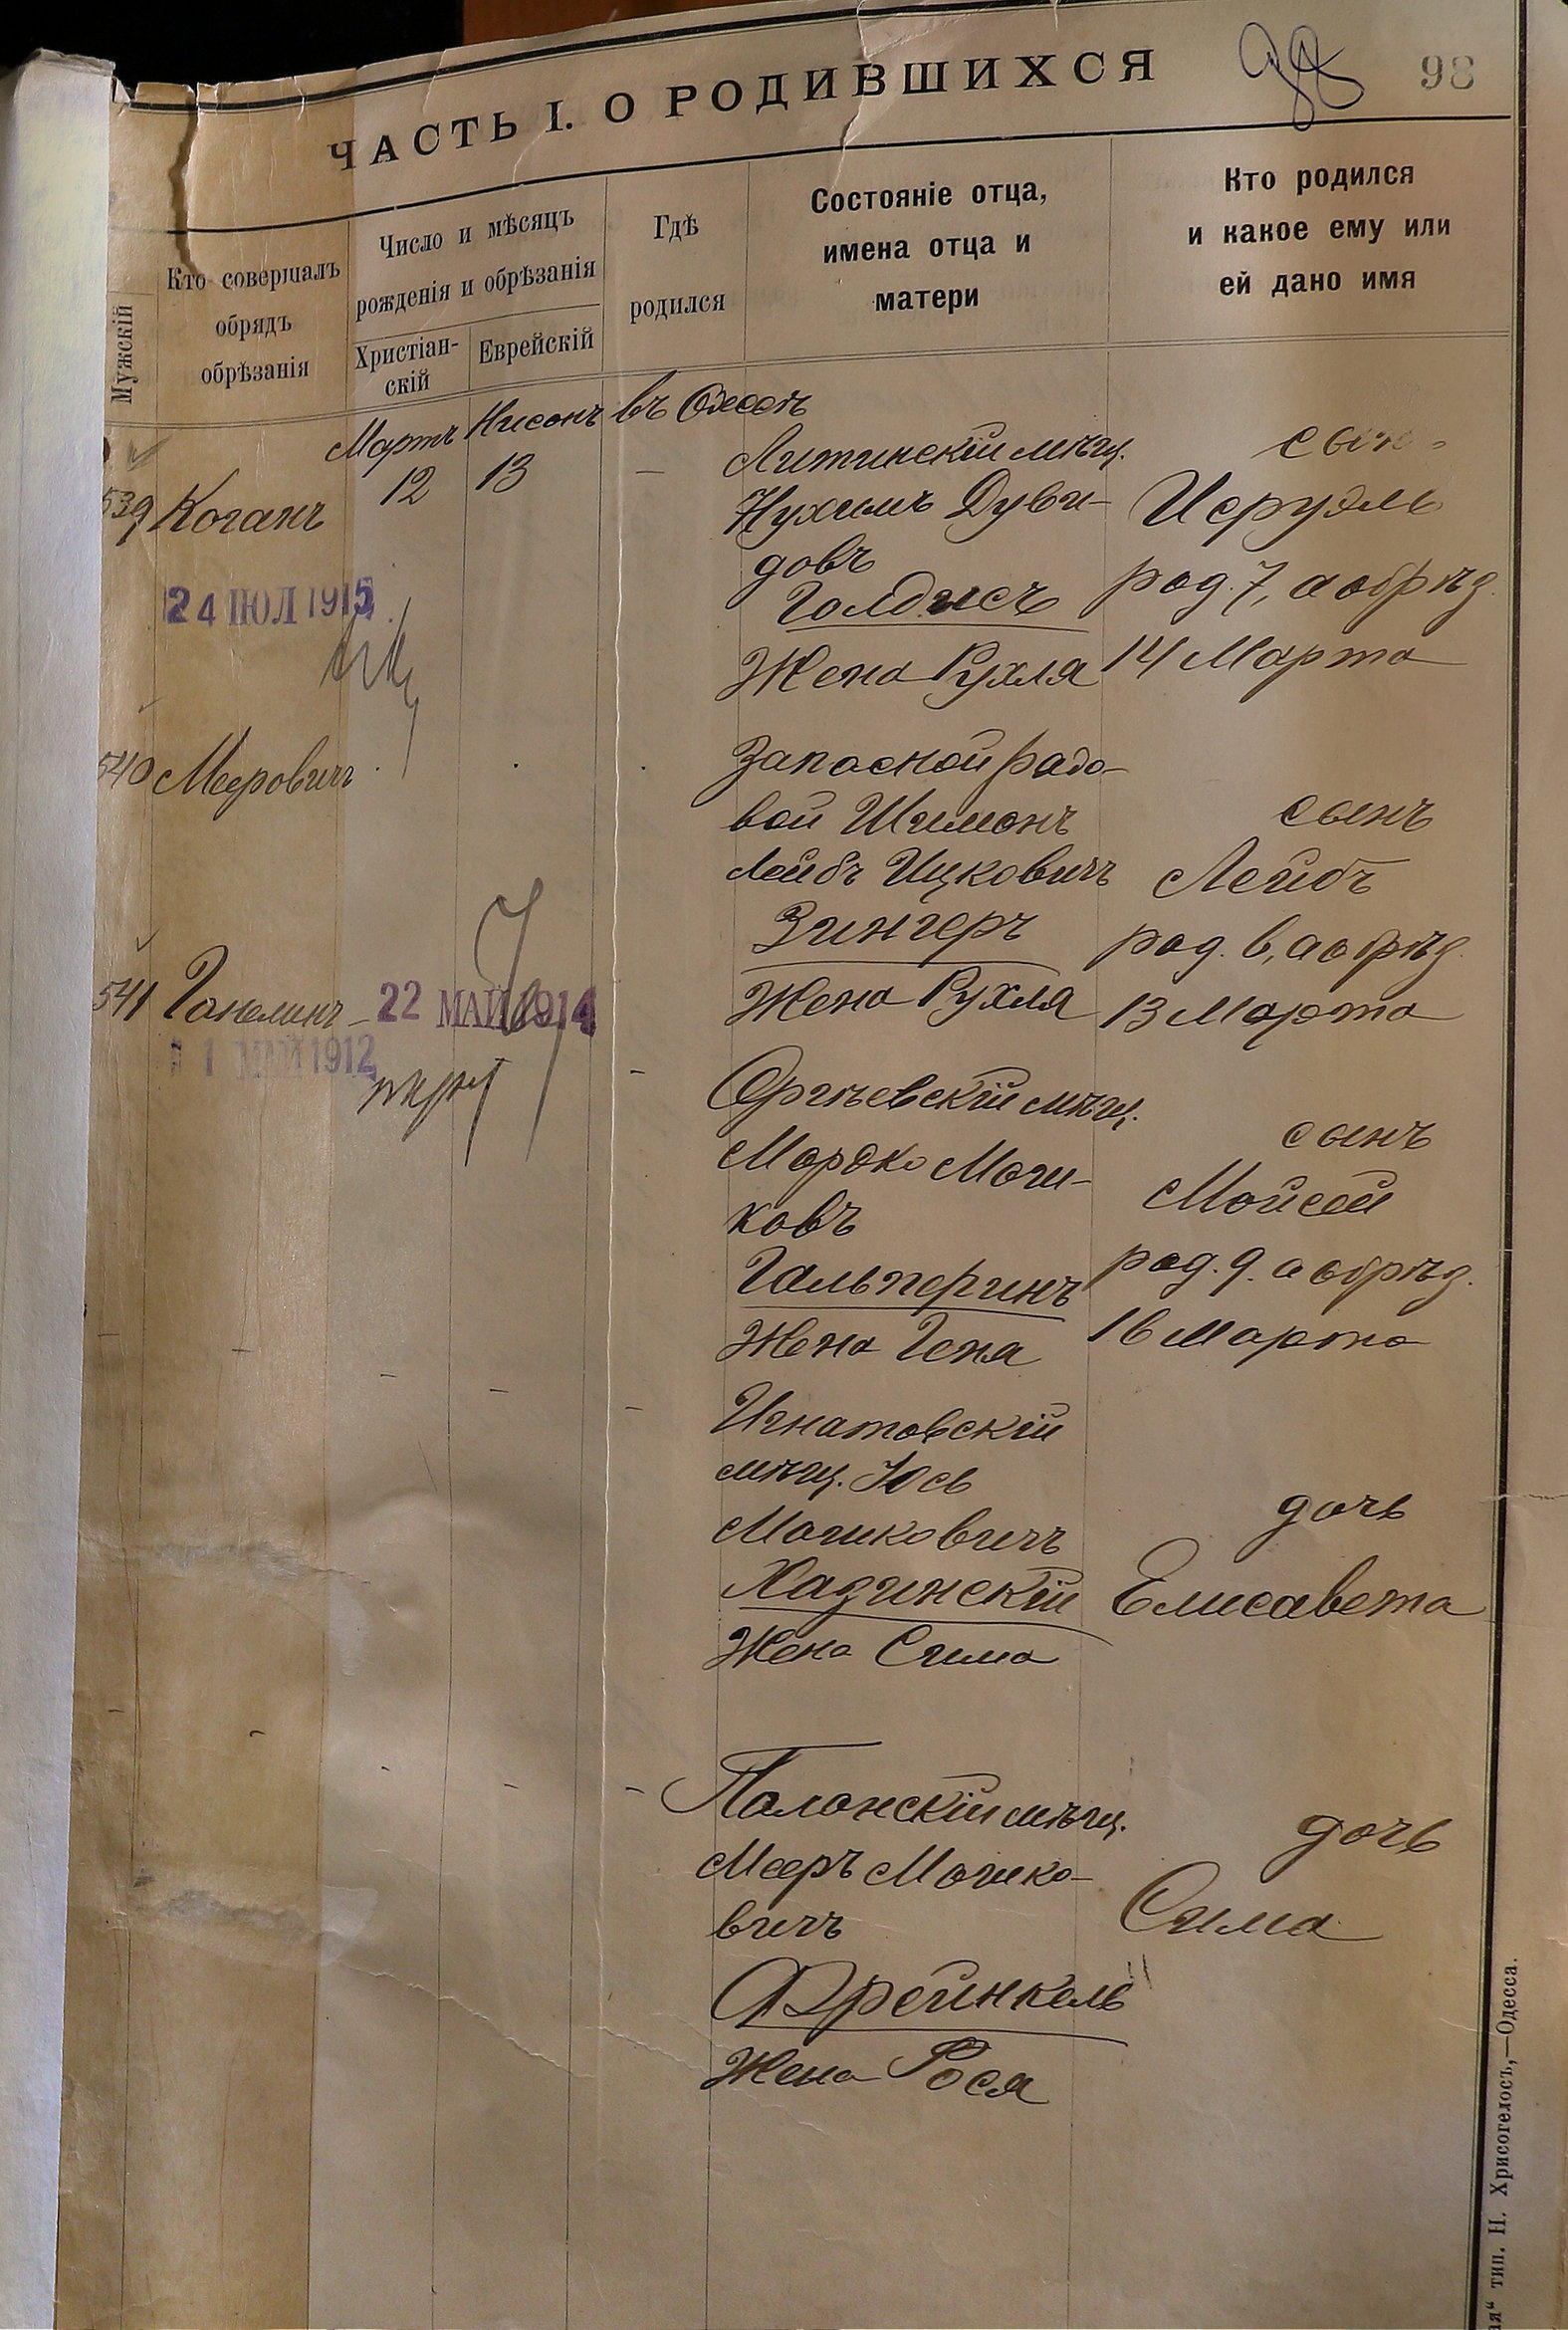 ЧАСТЬ I. О РОДИВШИХСЯ
98
98
Мужскій
Кто совершалъ
обрядъ
обрѣзанія
Число и мѣсяцъ
рожденія и обрѣзанія
Христіан-
скій
Еврейскій
Гдѣ
родился
Состояніе отца,
имена отца и
матери
Кто родился
и какое ему или
ей дано имя
Мартъ Нисонъ въ Одессѣ
539 Коганъ
12
13
Литинскій мѣщ.
Нухимъ Дуви-
довъ
Голдисъ
Жена Рухля
сынъ
Исруэль
род. 7, а обрѣз.
14 Марта
24 ІЮЛ 1915
540 Мерович
Запасной рядо-
вой Шимонъ
Лейбъ Ицковичъ
Зингеръ
Жена Рухля
сынъ
Лейбъ
род. 6, а обрѣз.
13 Марта
541 Ганелинъ
22 МАЙ 1914
1 МАЙ 1912
Оргѣевскій мѣщ.
Мордко Моши-
ковъ
Гальперинъ
Жена Геня
сынъ
Мойсей
род. 9. а обрѣз.
16 Марта
Игнатовскій
мѣщ. Юсь
Мошковичъ
Хазинскій
Жена Сима
дочь
Елисавета
Полонскій мѣщ.
Мееръ Мошко-
вичъ
Фрейнкель
Жена Рося
дочь
Сима
ая“ тип. Н. Хрисогелосъ,—Одесса.